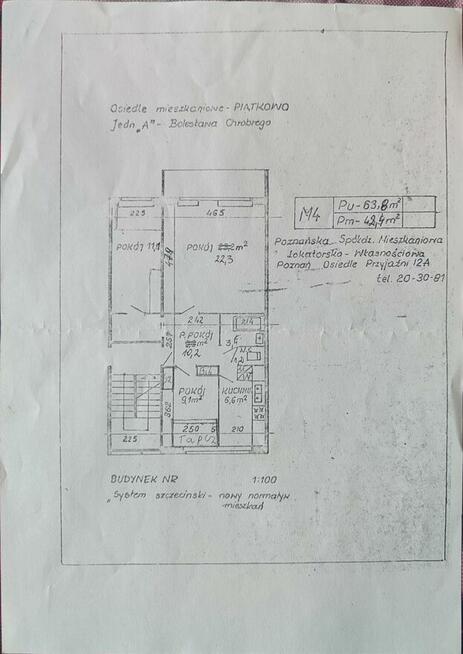 Osiedle mieszkaniowe - PIĄTKOWO
Jedn „A" - Bolesława Chrobrego
M4
Pu - 63,8 m²
Pm - 42,4 m²
Poznańska Spółdz. Mieszkaniowa
Lokatorsko - Własnościowa
Poznań Osiedle Przyjaźni 12A
tel. 20-30-81
225
465
POKÓJ 11,1
478
POKÓJ m²
22,3
242
214
257
P. POKÓJ
m²
10,2
W.C.
1,2
POKÓJ
9,1 m²
KUCHNIA
6,6 m²
362
225
250
210
Tapcz
BUDYNEK NR
1:100
„System szczeciński - nowy normatyw
mieszkań